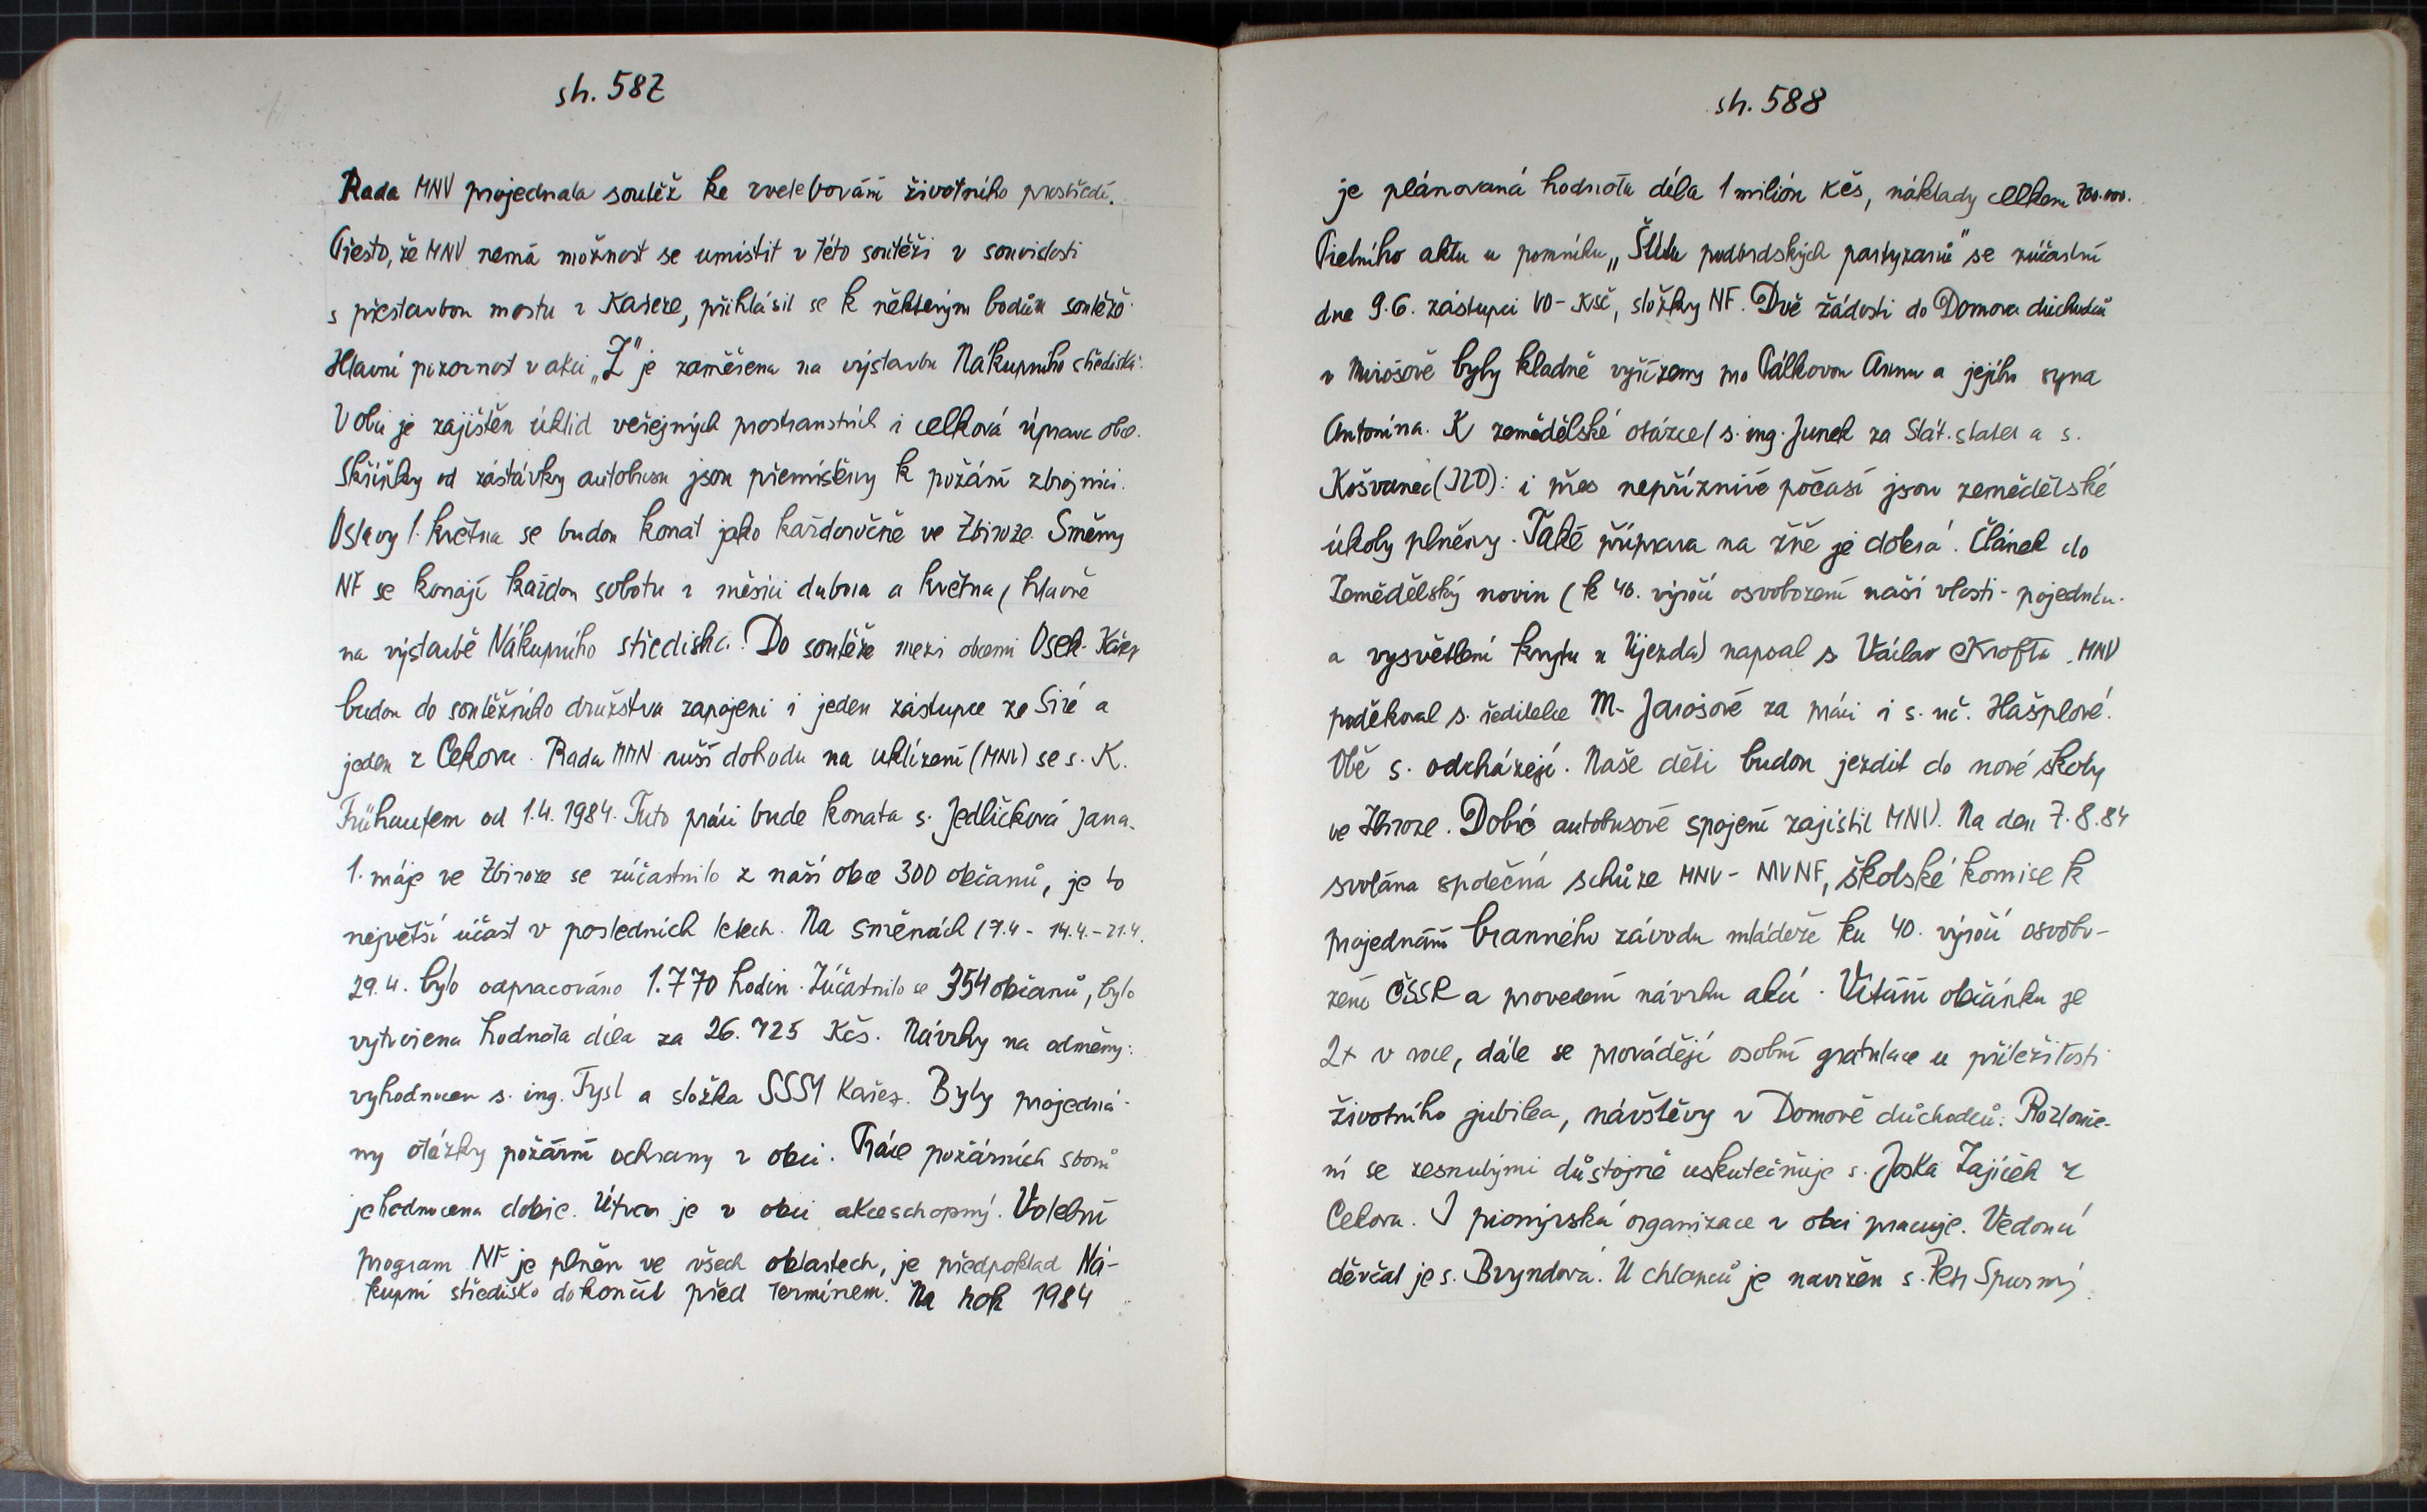 str. 587
Rada MNV projednala soutěž ke zvelebování životního prostředí.
Přesto, že MNV nemá možnost se umístit v této soutěži v souvislosti
s přestavbou mostu v Kařeze, přihlásil se k některým bodům soutěže.
Hlavní pozornost v akci „Z" je zaměřena na výstavbu Nákupního střediska.
V obci je zajištěn úklid veřejných prostranstvích i celková úprava obce.
Skříňky od zástávky autobusu jsou přemístěny k požární zbrojnici.
Oslavy 1. května se budou konat jako každoročně ve Zbiroze. Směny
NF se konají každou sobotu v měsíci dubna a května, hlavně
na výstavbě Nákupního střediska. Do soutěže mezi obcemi Osek - Kařez
budou do soutěžního družstva zapojeni i jeden zástupce ze Siré a
jeden z Cekova. Rada MNV ruší dohodu na uklízení (MNV) se s. K.
Frühaufem od 1.4.1984. Tuto práci bude konata s. Jedličková Jana.
1. máje ve Zbiroze se zúčastnilo z naší obce 300 občanů, je to
největší účast v posledních letech. Na směnách 17.4 - 14.4. - 21.4.
29.4. bylo odpracováno 1.770 hodin. Zúčastnilo se 354 občanů, bylo
vytvořena hodnota díla za 26.725 Kčs. Návrhy na odměny:
vyhodnocen s. ing. Tysl a složka SSM Kařez. Byly projedná-
ny otázky požární ochrany v obci. Práce požárních sborů
je hodnocena dobře. Útvar je v obci akceschopný. Volební
program NF je plněn ve všech oblastech, je předpoklad Ná-
kupní středisko dokončit před termínem. Na rok 1984
str. 588
je plánovaná hodnota díla 1 milión Kčs, náklady celkem 700.000.
Pietního aktu u pomníku „Štítu podbrdských partyzanů" se zúčastní
dne 9.6. zástupci VO-KSČ, složky NF. Dvě žádosti do Domova důchodců
v Mirošově byly kladně vyřízeny pro Pálkovou Annu a jejího syna
Antonína. K zemědělské otázce / s. ing. Junek za Stát. statek a s.
Košvanec (JZD): i přes nepříznivé počasí jsou zemědělské
úkoly plněny. Také příprava na žně je dobrá. Článek do
Zemědělský novin (k 40. výročí osvobození naší vlasti - pojednáv.
a vysvětlení krytu u Újezda) napsal s Václav Krofta. MNV
poděkoval s. ředitelce M. Jarošové za práci i s. uč. Hašplové.
Obě s. odcházejí. Naše děti budou jezdit do nové školy
ve Zbiroze. Dobré autobusové spojení zajistil MNV. Na den 7.8.84
svolána společná schůze MNV - MVNF, školské komise k
projednání branného závodu mládeže ku 40. výročí osvobo-
zení ČSSR a provedení návrhu akcí. Vítání občánku je
2x v roce, dále se provádějí osobní gratulace u příležitosti
životního jubilea, návštěvy v Domově důchodců. Rozlouče-
ní se zesnulými důstojně uskutečňuje s. Joska Zajíček z
Cekova. I pionýrská organizace v obci pracuje. Vedoucí
děvčat je s. Bryndová. U chlapců je navržen s. Petr Spurný.